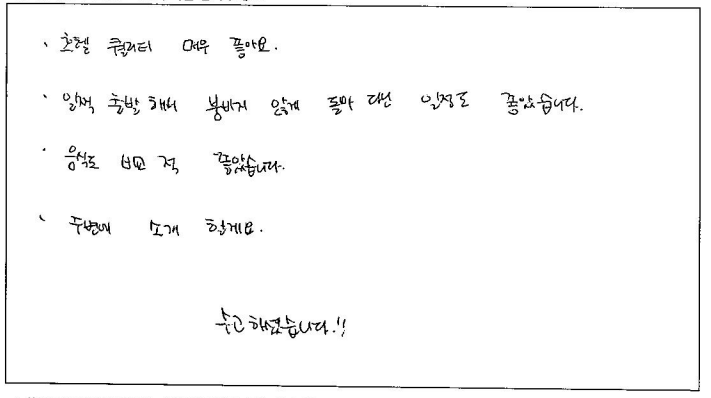 · 호텔 퀄리티 매우 좋아요.
· 일찍 출발해서 붐비지 않게 돌아 다닌 일정도 좋았습니다.
· 음식도 비교적 좋았습니다.
· 주변에 소개 할게요.
수고하셨습니다.!!